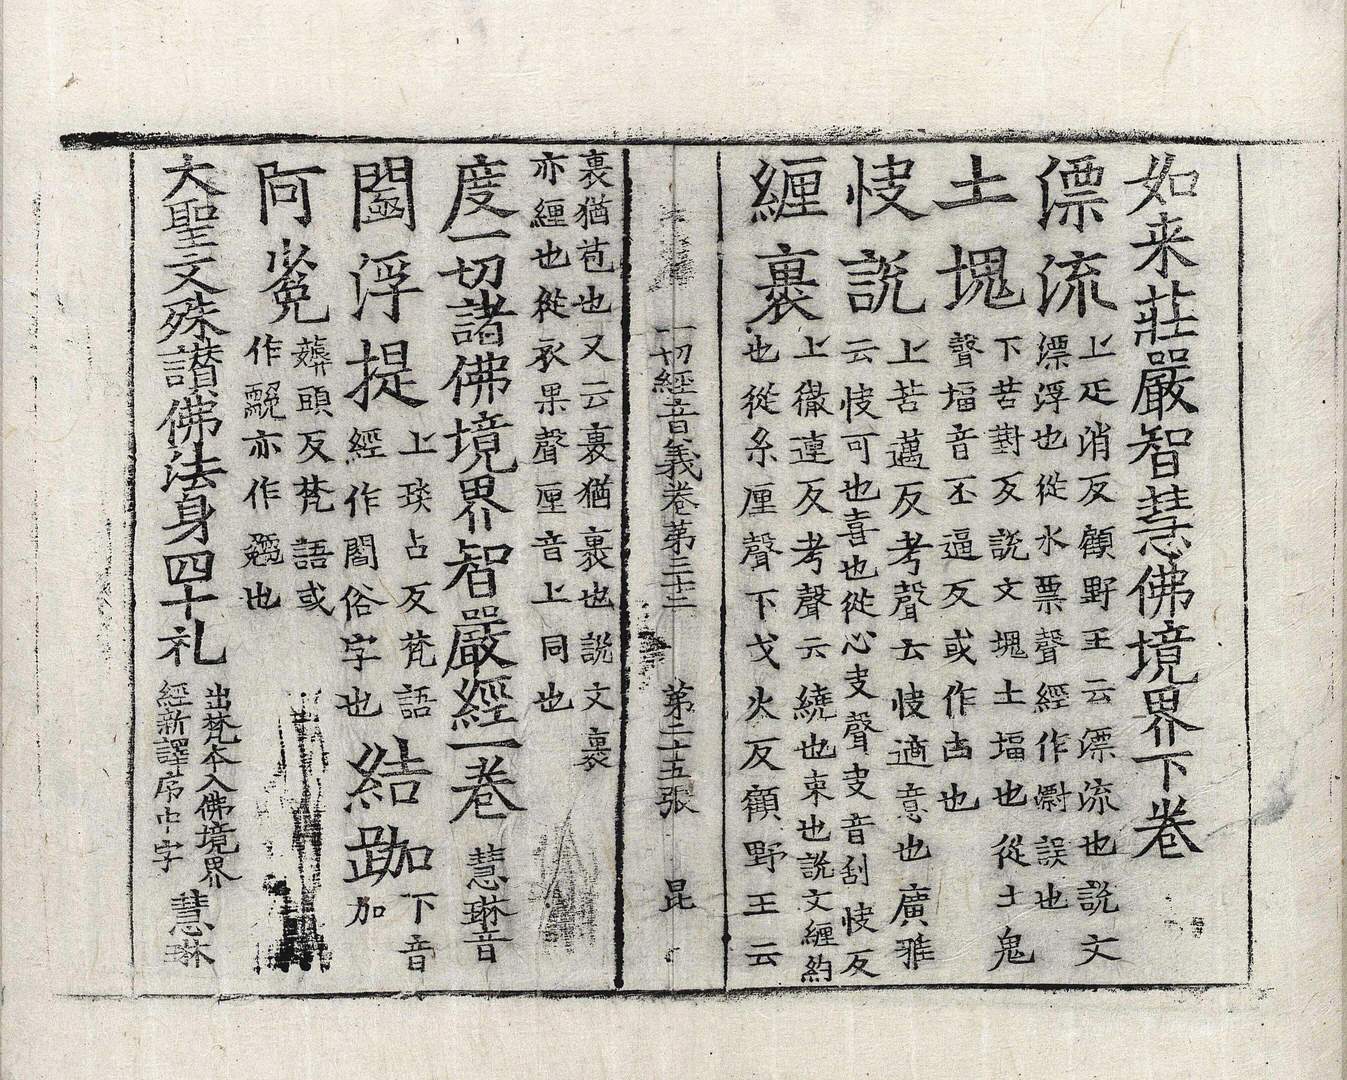 如来莊嚴智慧佛境界下卷
漂流 上疋消反顧野王云漂流也說文
漂浮也從水票聲經作㵱誤也
土塊 下苦對反說文塊土堛也從土鬼
聲堛音丕逼反或作凷也
快說 上苦邁反考聲云快適意也廣雅
云快可也喜也從心夬聲夬音刮快反
纏裹 上徹連反考聲云繞也束也說文纏約
也從糸厘聲下戈火反顧野王云
一切經音義卷第三十二 第二十五張 昆
裹猶苞也又云裹猶裹也說文裹
亦纏也從衣果聲厘音上同也
度一切諸佛境界智嚴經一卷 慧琳音
閻浮提 上琰占反梵語
經作閻俗字也
結跏 下音
加
阿㲉 頭反梵語或
作亦作也
大聖文殊讃佛法身四十礼 出梵本入佛境界
經新譯帋中字 慧琳